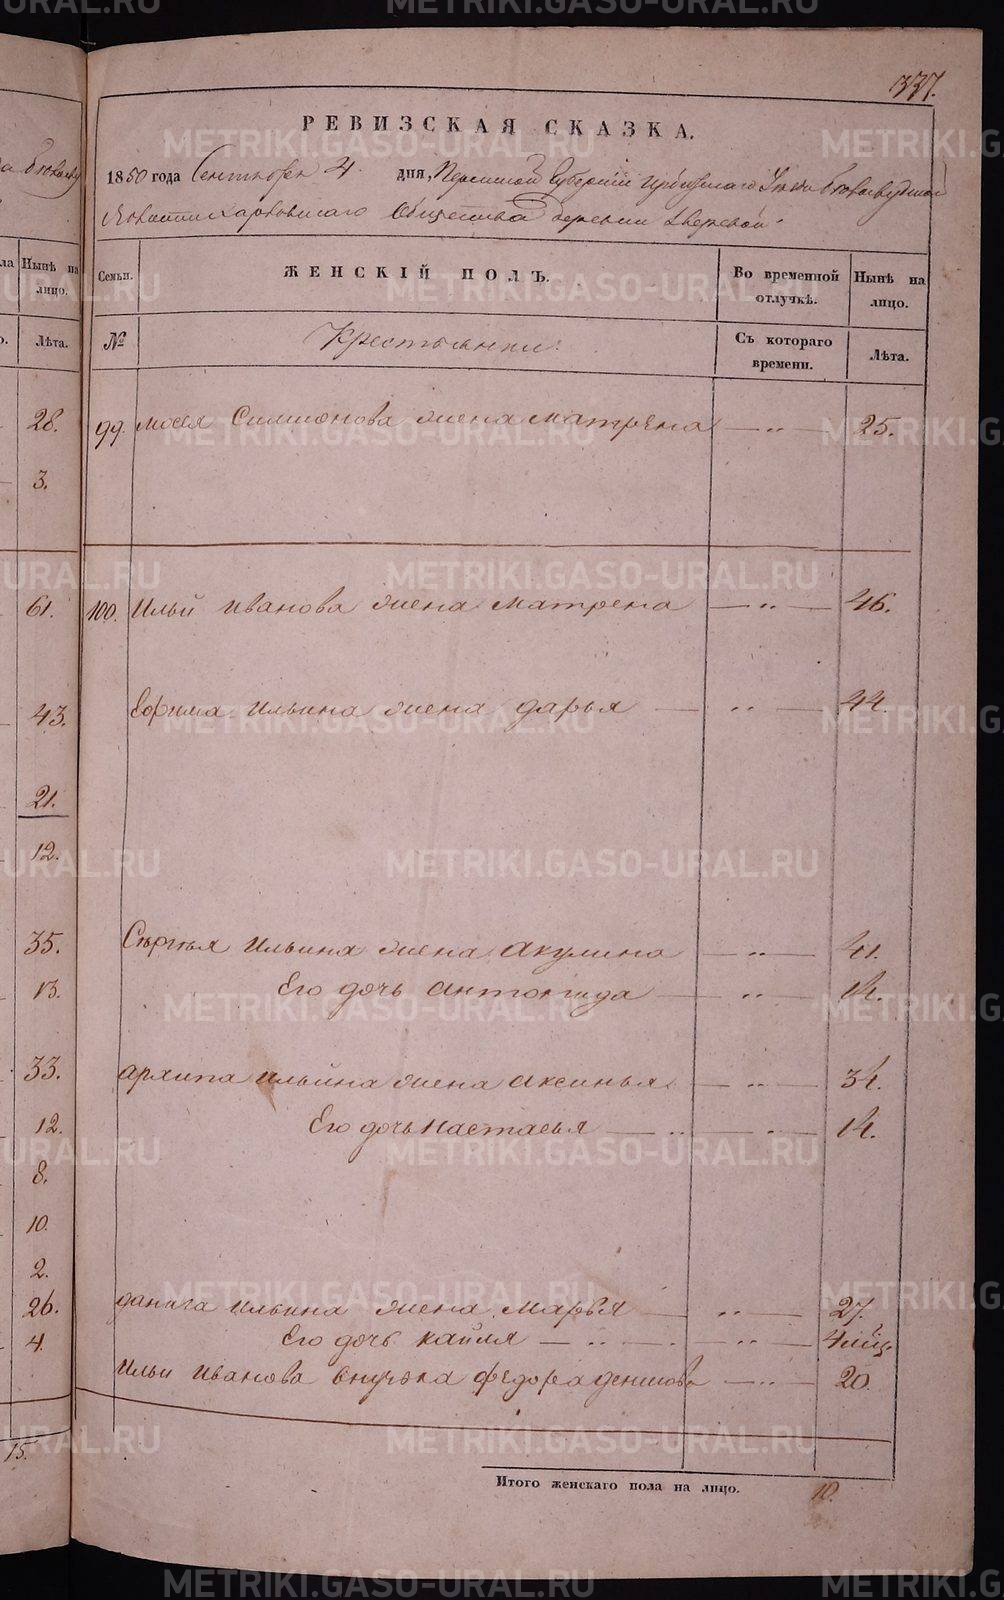 337.
РЕВИЗСКАЯ СКАЗКА.
1850 года Сентября 4 дня, Пермской Губерніи Уезда
Общества деревни Зверевой
Семьи. ЖЕНСКІЙ ПОЛЪ. Во временной отлучкѣ. Нынѣ на лицо.
№ Крестьянки. Съ котораго времени. Лѣта.
99. Мосея Симионова жена Матрена — „ — 25.
100. Ильи Иванова жена Матрена — „ — 46.
Ефима Ильина жена Дарья — „ — 44.
Сергѣя Ильина жена Акулина — „ — 41.
Его дочь Антонида — „ — 14.
Архипа Ильина жена Аксинья — „ — 34.
Его дочь Настасья — „ — „ — 14.
Данила Ильина жена Марья — „ — 27.
Его дочь — „ — „ — 4 мѣц.
Ильи Иванова внучка Федора — „ — 20.
Итого женскаго пола на лицо. 10.
Нынѣ на лицо.
Лѣта.
28.
3.
61.
43.
21.
12.
35.
13.
33.
12.
8.
10.
2.
26.
4.
15.
METRIKI.GASO-URAL.RU